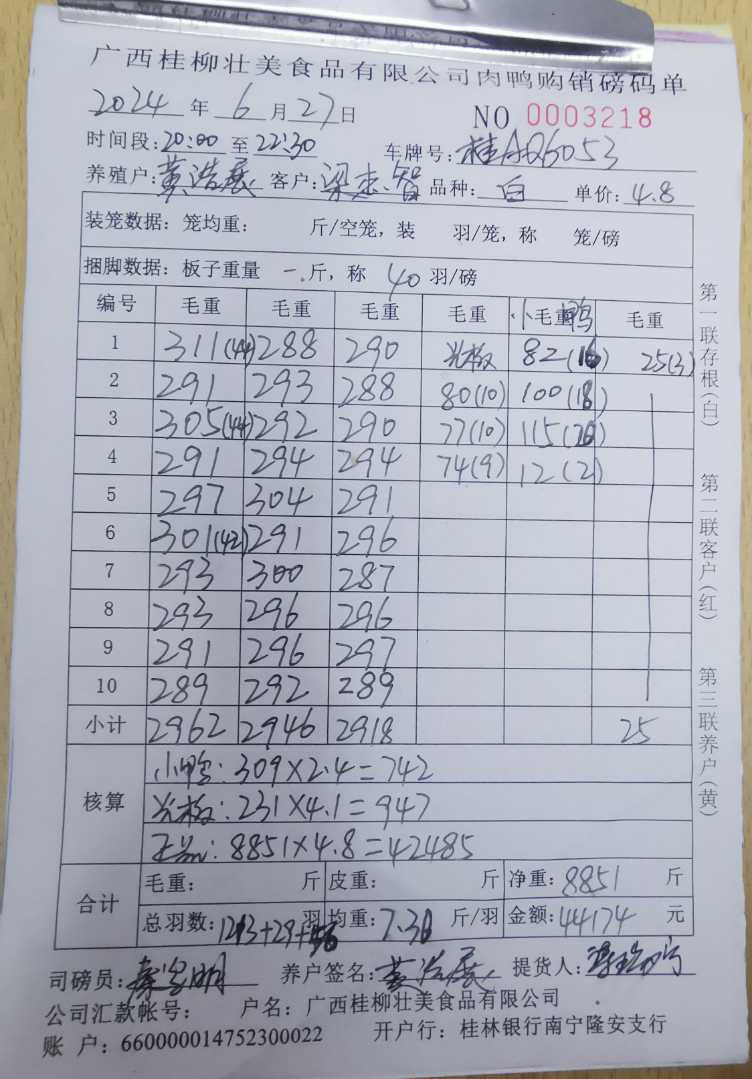 广西桂柳壮美食品有限公司肉鸭购销磅码单
2024年6月27日 NO 0003218
时间段:20:00至22:30 车牌号:桂AQ6053
养殖户:黄浩展 客户:梁志智 品种:白 单价:4.8
装笼数据:笼均重: 斤/空笼,装 羽/笼,称 笼/磅
捆脚数据:板子重量 一.斤,称 40 羽/磅
编号 毛重 毛重 毛重 毛重 小毛重鸭 毛重
1 311(44) 288 290 光板 82(16) 25(3)
2 291 293 288 80(10) 100(18)
3 305(44) 292 290 77(10) 115(20)
4 291 294 294 74(9) 12(2)
5 297 304 291
6 301(42) 291 296
7 293 300 287
8 293 296 296
9 291 296 297
10 289 292 289
小计 2962 2946 2918 25
核算
小鸭:309×2.4=742
光板:231×4.1=947
正品:8851×4.8=42485
合计
毛重: 斤 皮重: 斤 净重:8851 斤
总羽数:1213+29+56 羽 均重:7.30 斤/羽 金额:44174 元
司磅员: 养户签名:黄浩展 提货人:
公司汇款帐号: 户名:广西桂柳壮美食品有限公司
账 户:660000014752300022 开户行:桂林银行南宁隆安支行
第一联存根(白)
第二联客户(红)
第三联养户(黄)